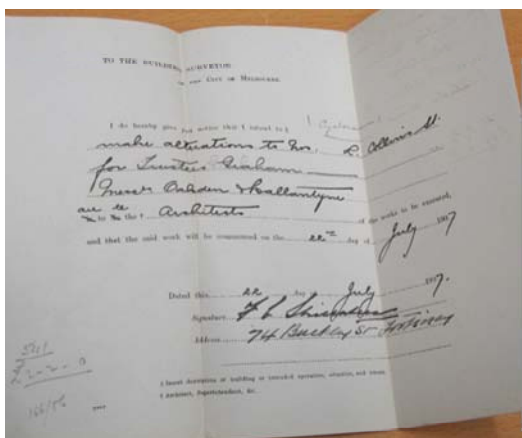 TO THE BUILDING SURVEYOR
OF THE CITY OF MELBOURNE.
I do hereby give you notice that I intend to ‡
make alterations to No. Collins St.
for Trustees Graham
Messrs Oakden & Ballantyne
are to be the † Architects of the works to be executed,
and that the said work will be commenced on the 22nd day of July 1917
Dated this 22 day July 1917.
Signature
Address 74 Buckley St Footscray
‡ Insert description of building or intended operation, situation, and owner.
† Architect, Superintendent, &c.
2-2-0